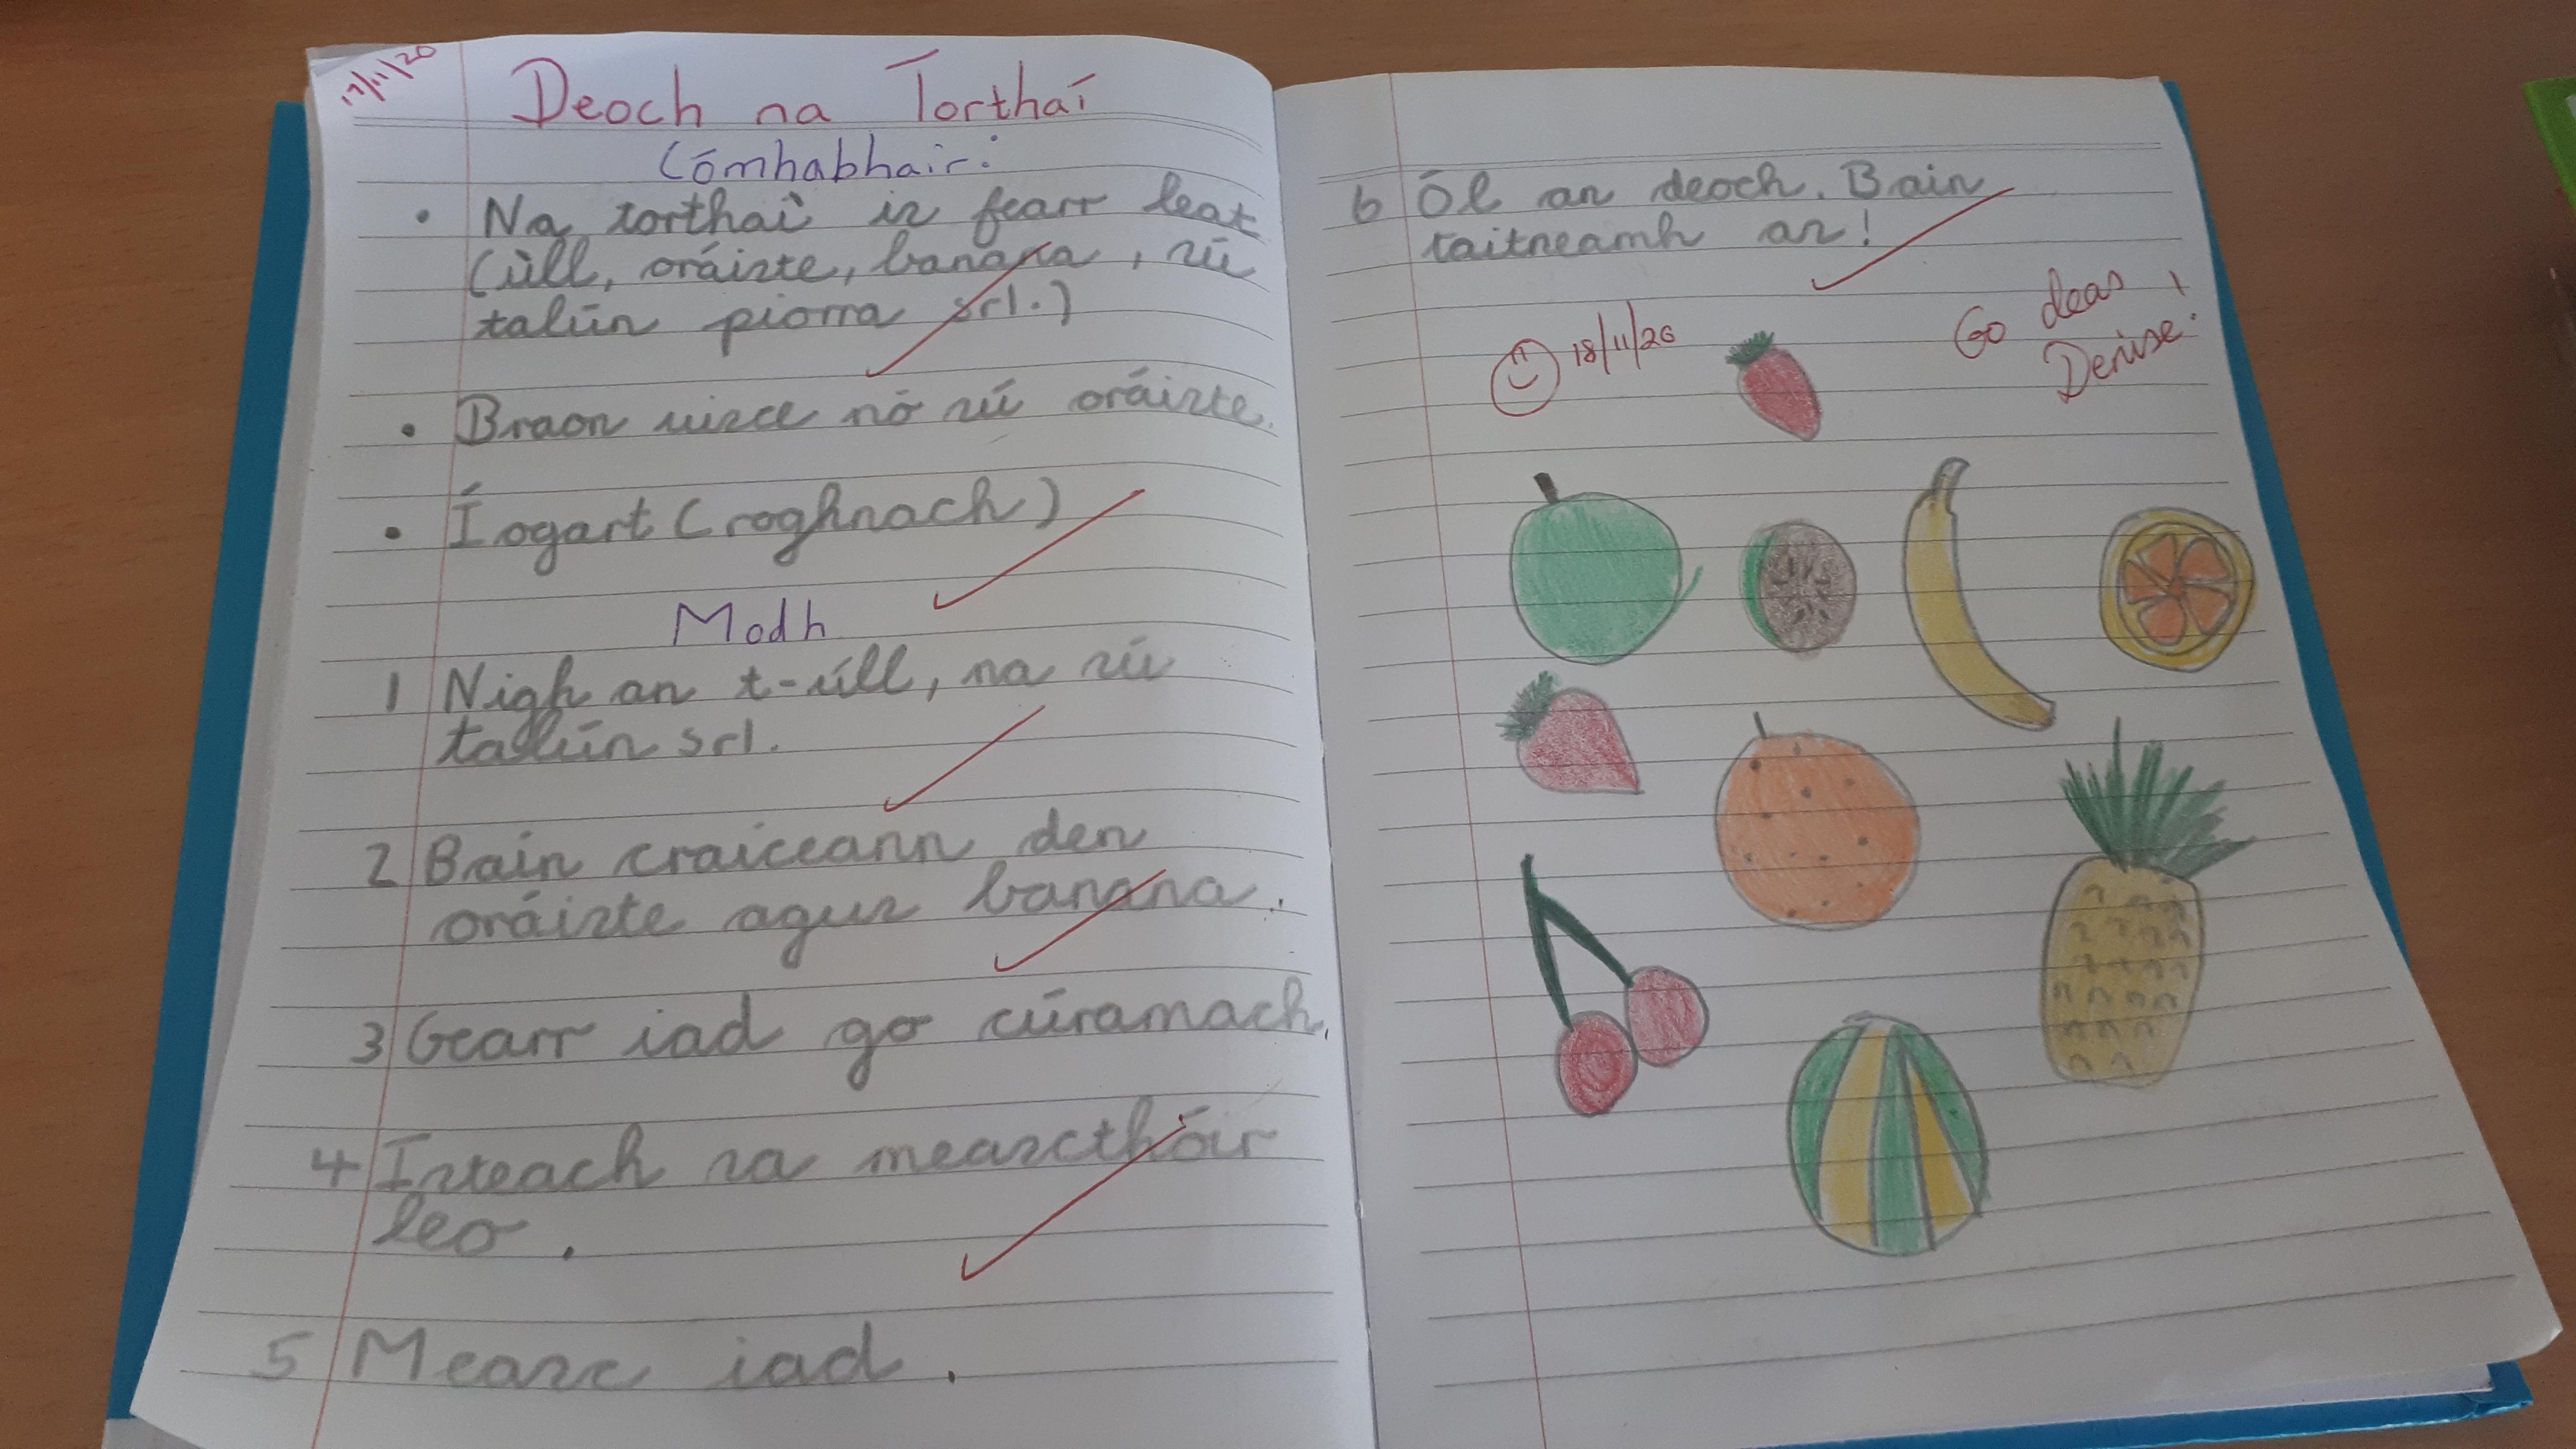 17/11/20
Deoch na Torthaí
Cómhabhair:
• Na torthaí is fearr leat
(úll, oráiste, banana, sú
talún piorra srl.)
• Braon uisce nó sú oráiste.
• Íogart (roghnach)
Modh
1 Nigh an t-úll, na sú
talún srl.
2 Bain craiceann den
oráiste agus banana.
3 Gearr iad go cúramach.
4 Isteach sa meascthóir
leo.
5 Measc iad.
6 Ól an deoch. Bain
taitneamh as!
18/11/20
Go deas,
Denise!